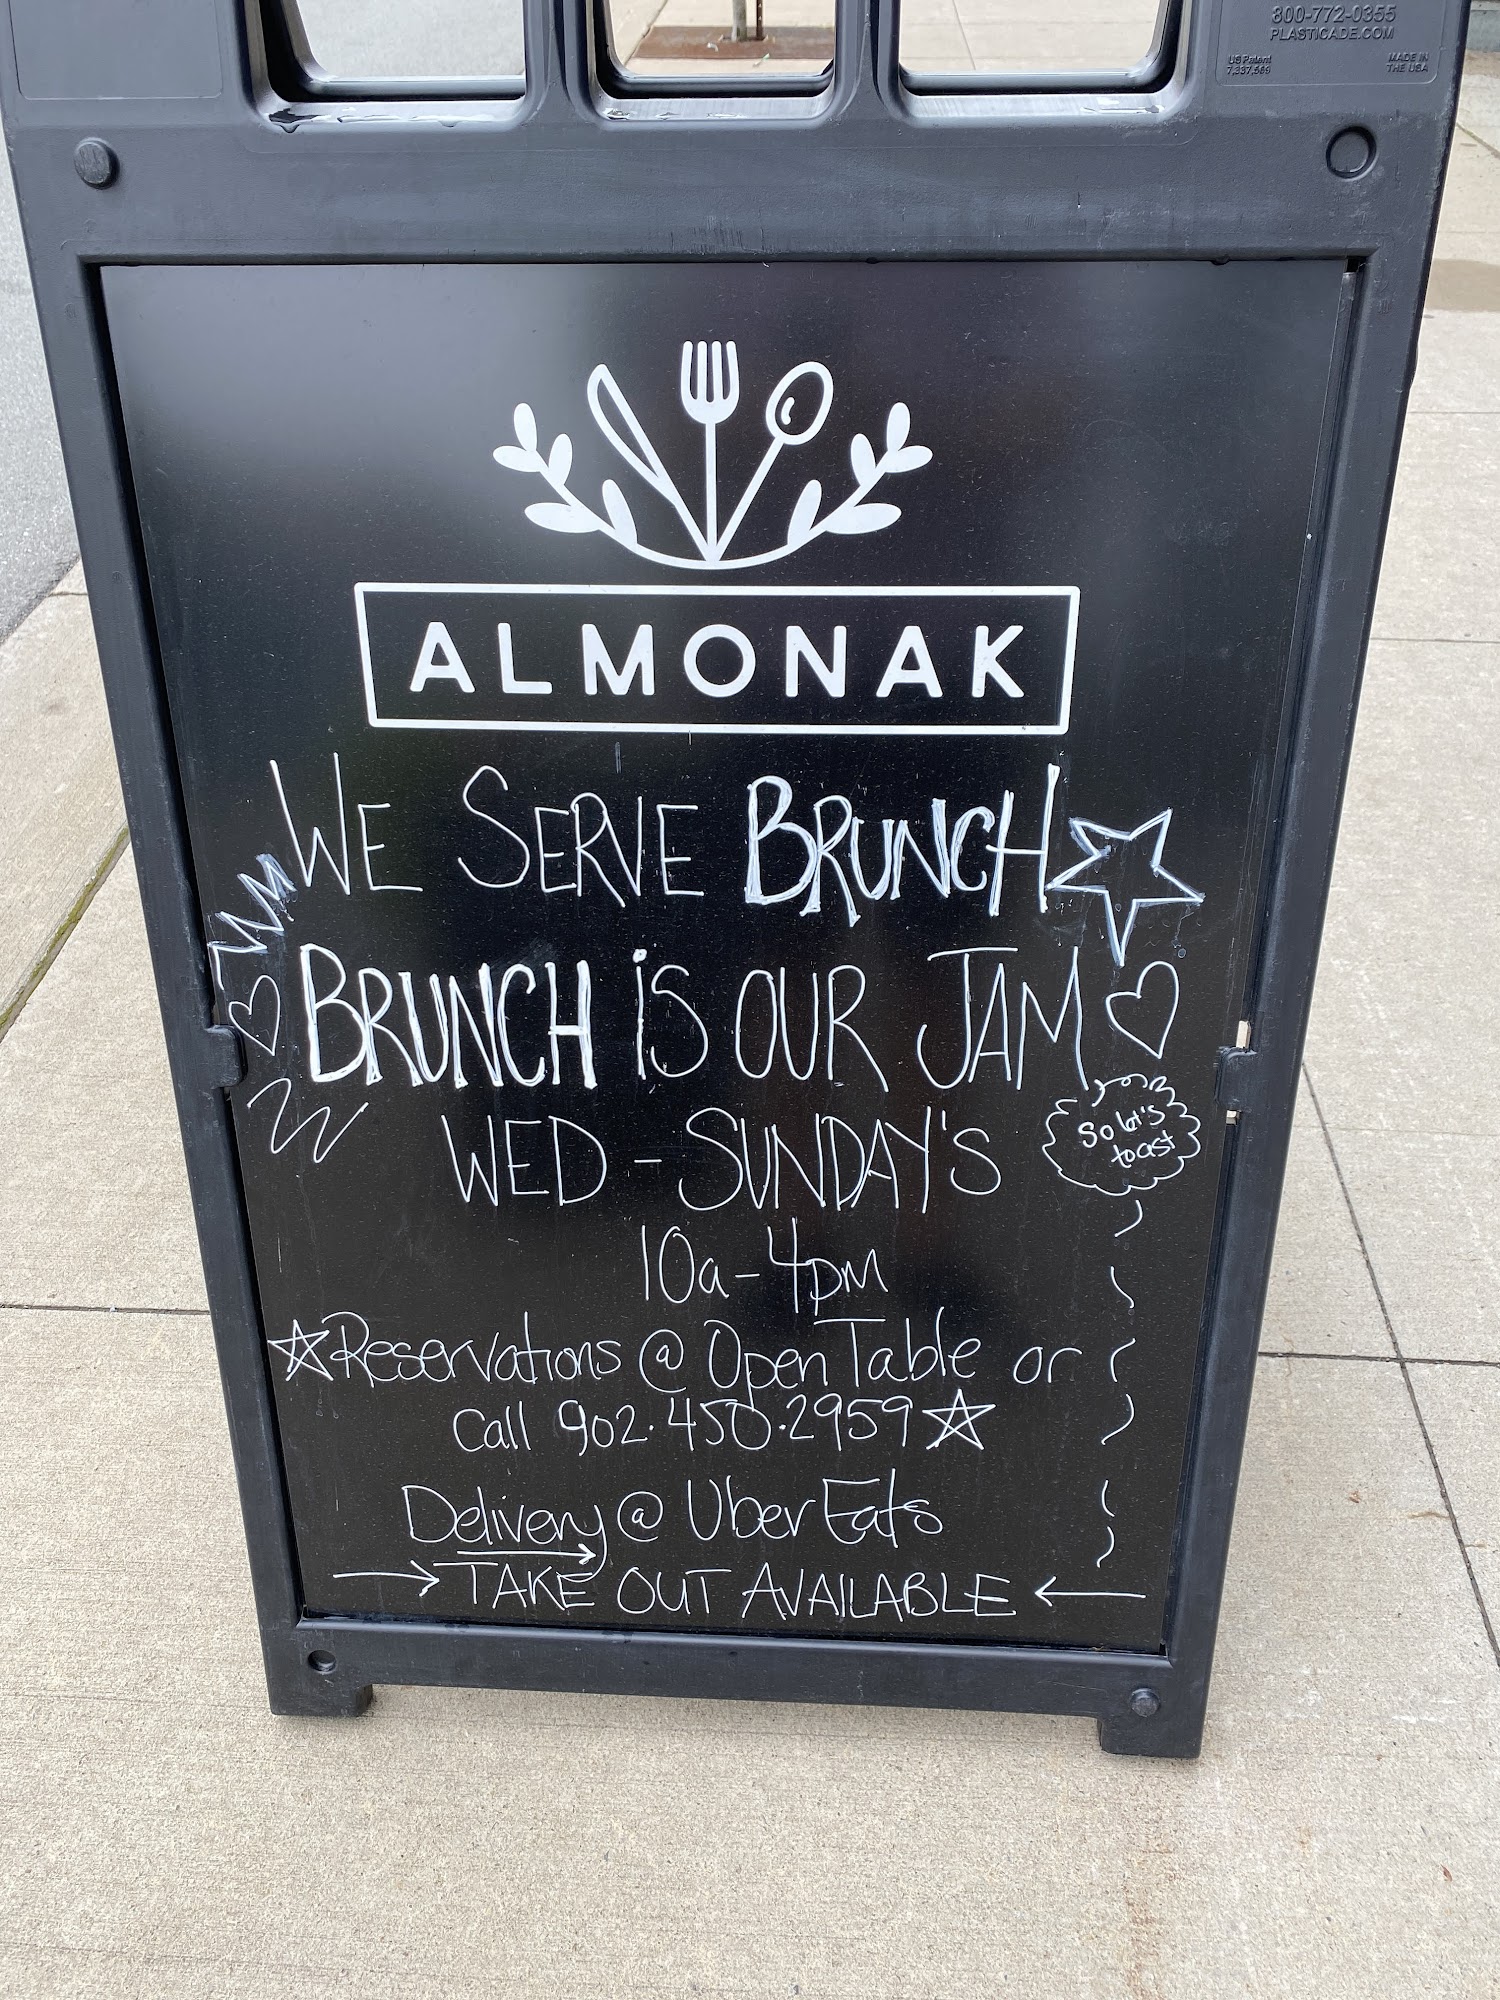 800-772-0355
PLASTICADE.COM
US Patent
7,337,569
MADE IN
THE USA
ALMONAK
WE SERVE BRUNCH
BRUNCH iS OUR JAM
So let's
toast
WED - SUNDAY'S
10a-4pm
Reservations @ OpenTable or
Call 902.450.2959
Delivery @ Uber Eats
TAKE OUT AVAILABLE